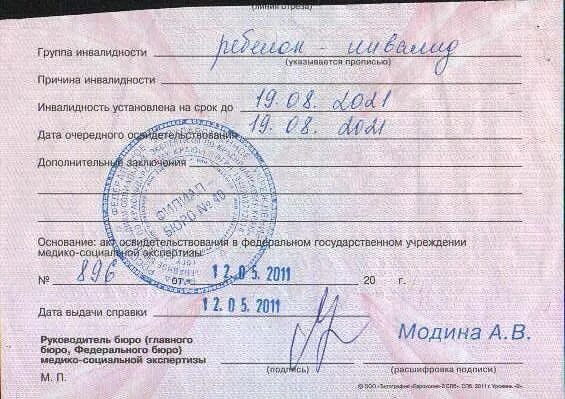 (линия отреза)
Группа инвалидности ребенок - инвалид
(указывается прописью)
Причина инвалидности
Инвалидность установлена на срок до 19.08.2021
Дата очередного освидетельствования 19.08.2021
Дополнительные заключения
ФИЛИАЛ
БЮРО № 40
Основание: акт освидетельствования в федеральном государственном учреждении
медико-социальной экспертизы
№ 896 от 12.05.2011 20 г.
Дата выдачи справки 12.05.2011
Руководитель бюро (главного
бюро, Федерального бюро)
медико-социальной экспертизы
Модина А.В.
М. П.
(подпись)
(расшифровка подписи)